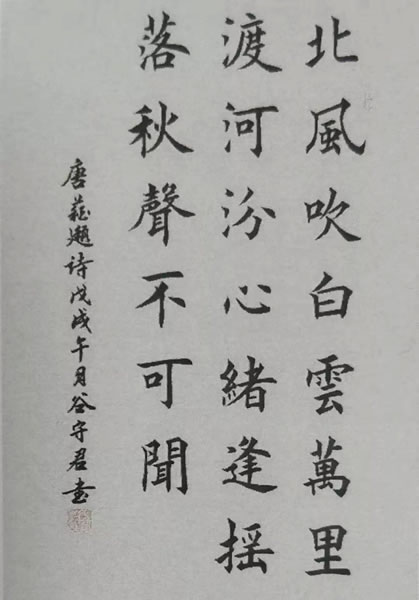 北風吹白雲萬里
渡河汾心緒逢摇
落秋聲不可聞
唐蘓題詩戊戌午月谷守君書